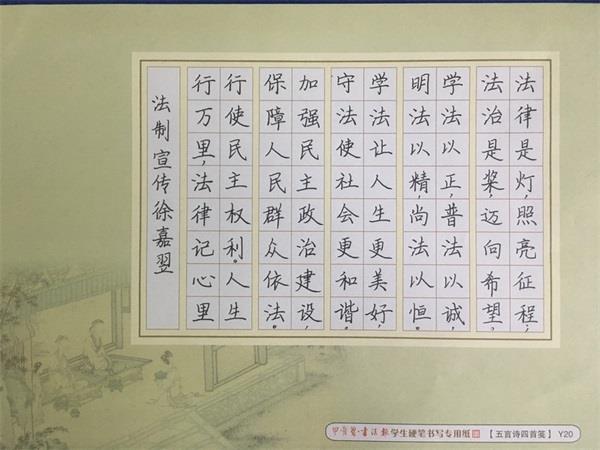 法律是灯，照亮征程，
法治是桨，迈向希望，
学法以正，普法以诚，
明法以精，尚法以恒。
学法让人生更美好，
守法使社会更和谐，
加强民主政治建设，
保障人民群众依法。
行使民主权利。人生
行万里，法律记心里
法制宣传徐嘉翌
书法报学生硬笔书写专用纸 【五言诗四首笺】 Y20